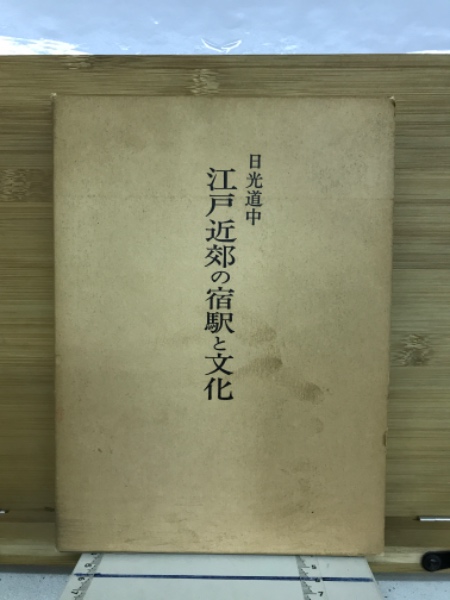 日光道中
江戸近郊の宿駅と文化